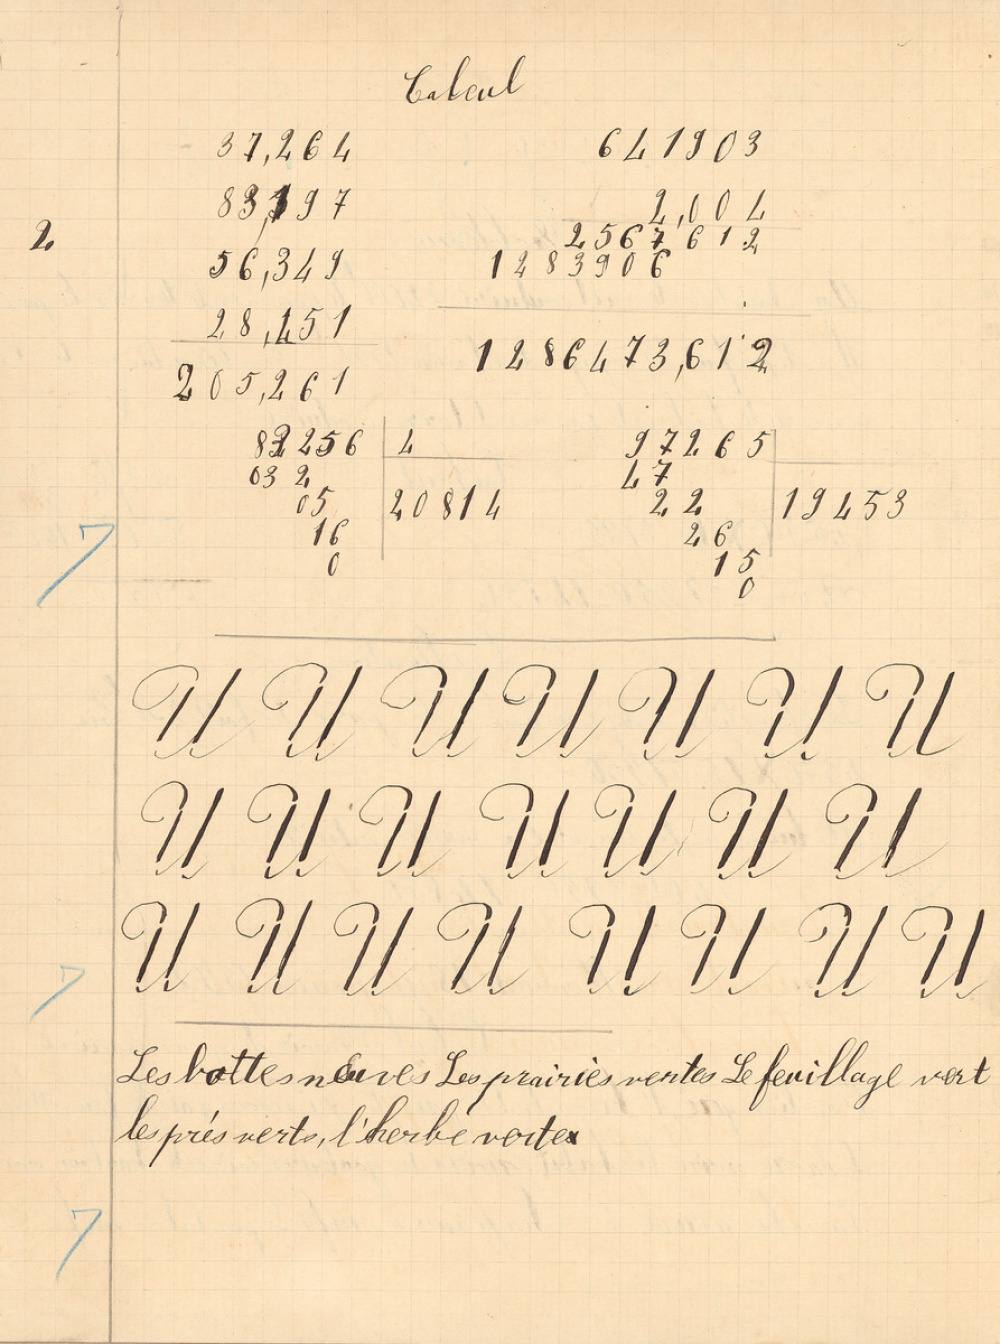 Calcul
37,264 641903
83,197 2,004
2 2567612
56,349 1283906
28,451
205,261 1286473,612
83256 4 97265
032 47
05 20814 22 19453
16 26
0 15
0
7
U U U U U U U
U U U U U U U
U U U U U U U U
7
Les bottes neuves Les prairies vertes Le feuillage vert
les prés verts, l'herbe verte
7